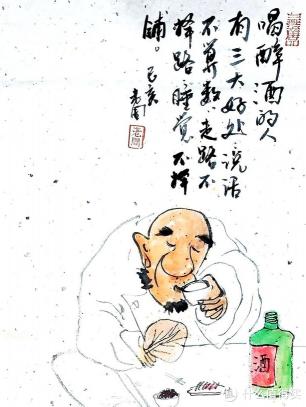 喝醉酒的人
有三大好处说话
不算数走路不
择路睡觉不择
铺。己亥
老周
酒
什么值得买